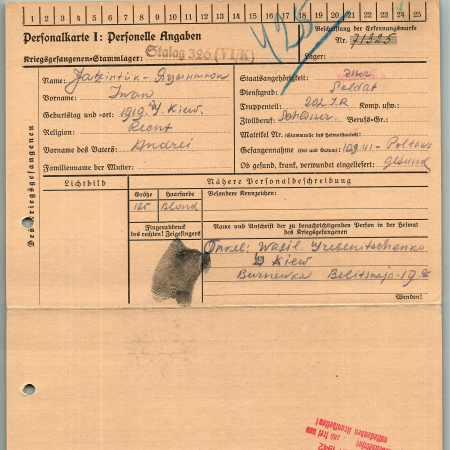 1 2 3 4 5 6 7 8 9 10 11 12 13 14 15 16 17 18 19 20 21 22 23 24 25
Personalkarte I: Personelle Angaben
Beschriftung der Erkennungsmarke
Nr. 71325
425
Kriegsgefangenen-Stammlager: Stalag 326 (VI/K)
Lager:
Des Kriegsgefangenen
Name:
Vorname: Iwan
Geburtstag und -ort: 1919. Kiew.
Religion:
Vorname des Vaters: Andrei
Familienname der Mutter:
Staatsangehörigkeit:
Dienstgrad: Soldat
Truppenteil: 202 I.R Komp. usw.:
Zivilberuf: Schlosser. Berufs-Gr.:
Matrikel Nr. (Stammrolle des Heimatstaates):
Gefangennahme (Ort und Datum): Poltawa
Ob gesund, krank, verwundet eingeliefert: gesund
Lichtbild
Nähere Personalbeschreibung
Größe Haarfarbe Besondere Kennzeichen:
165 Blond
Fingerabdruck
des rechten! Zeigefingers
Name und Anschrift der zu benachrichtigenden Person in der Heimat
des Kriegsgefangenen
Onkel: Wasil
Kiew
Wenden!
1942